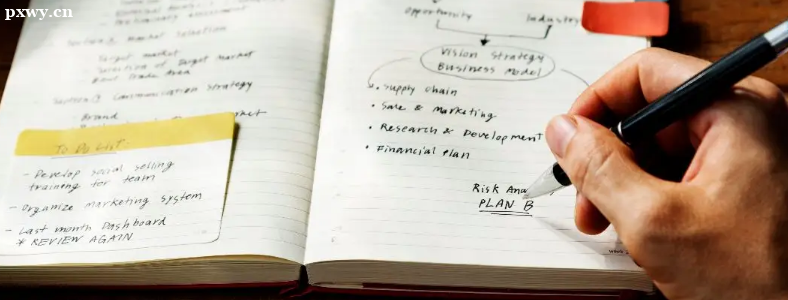 pxwy.cn
Section 3 Market Selection
Target market
Selection of Target Market
Section 9 Communication Strategy
Brand
To Do List:
- Develop social selling
training for team
- Organize marketing system
- Last month Dashboard
* REVIEW AGAIN
Opportunity
Industry
Vision Strategy
Business Model
• Supply chain
• Sale & Marketing
• Research & Development
• Financial plan
Risk
PLAN B